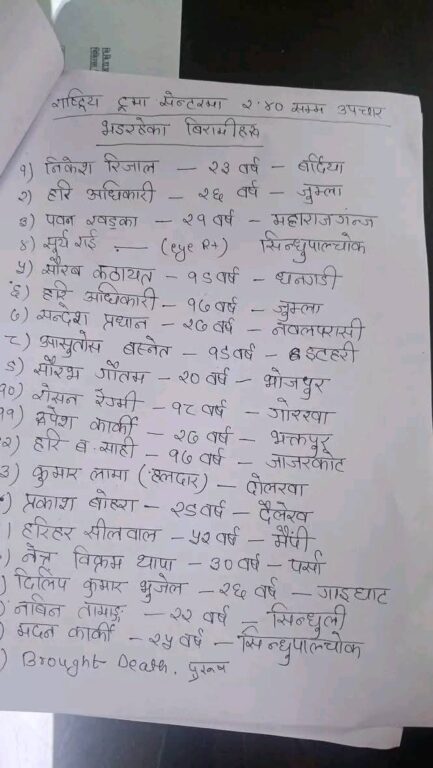 राष्ट्रिय ट्रमा सेन्टरमा २:४० सम्म उपचार
भइरहेका बिरामीहरू
१) निकेश रिजाल — २३ वर्ष — बर्दिया
२) हरि अधिकारी — २६ वर्ष — जुम्ला
३) पवन खड्का — २१ वर्ष — महाराजगन्ज
४) सूर्य राई — (eye R+) सिन्धुपाल्चोक
५) सौरब कठायत — १९ वर्ष — धनगढी
६) हरि अधिकारी — १७ वर्ष — जुम्ला
७) सन्देश प्रधान — २७ वर्ष — नवलपरासी
८) आसुतोस बस्नेत — १९ वर्ष — इटहरी
९) सौरभ गौतम — २० वर्ष — भोजपुर
१०) रोसन रेग्मी — १८ वर्ष — गोरखा
११) रुपेश कार्की — २७ वर्ष — भक्तपुर
२) हरि ब. साही — १७ वर्ष — जाजरकोट
३) कुमार लामा (हलदार) — दोलखा
) प्रकाश बोहरा — २९ वर्ष — दैलेख
) हरिहर सीलवाल — ५२ वर्ष —
) नेत्र विक्रम थापा — ३० वर्ष — पर्सा
) दिलिप कुमार भुजेल — २६ वर्ष — गाइघाट
) नबिन तामाङ — २२ वर्ष — सिन्धुली
) मदन कार्की — २५ वर्ष — सिन्धुपाल्चोक
) Brought Death. पुरूष